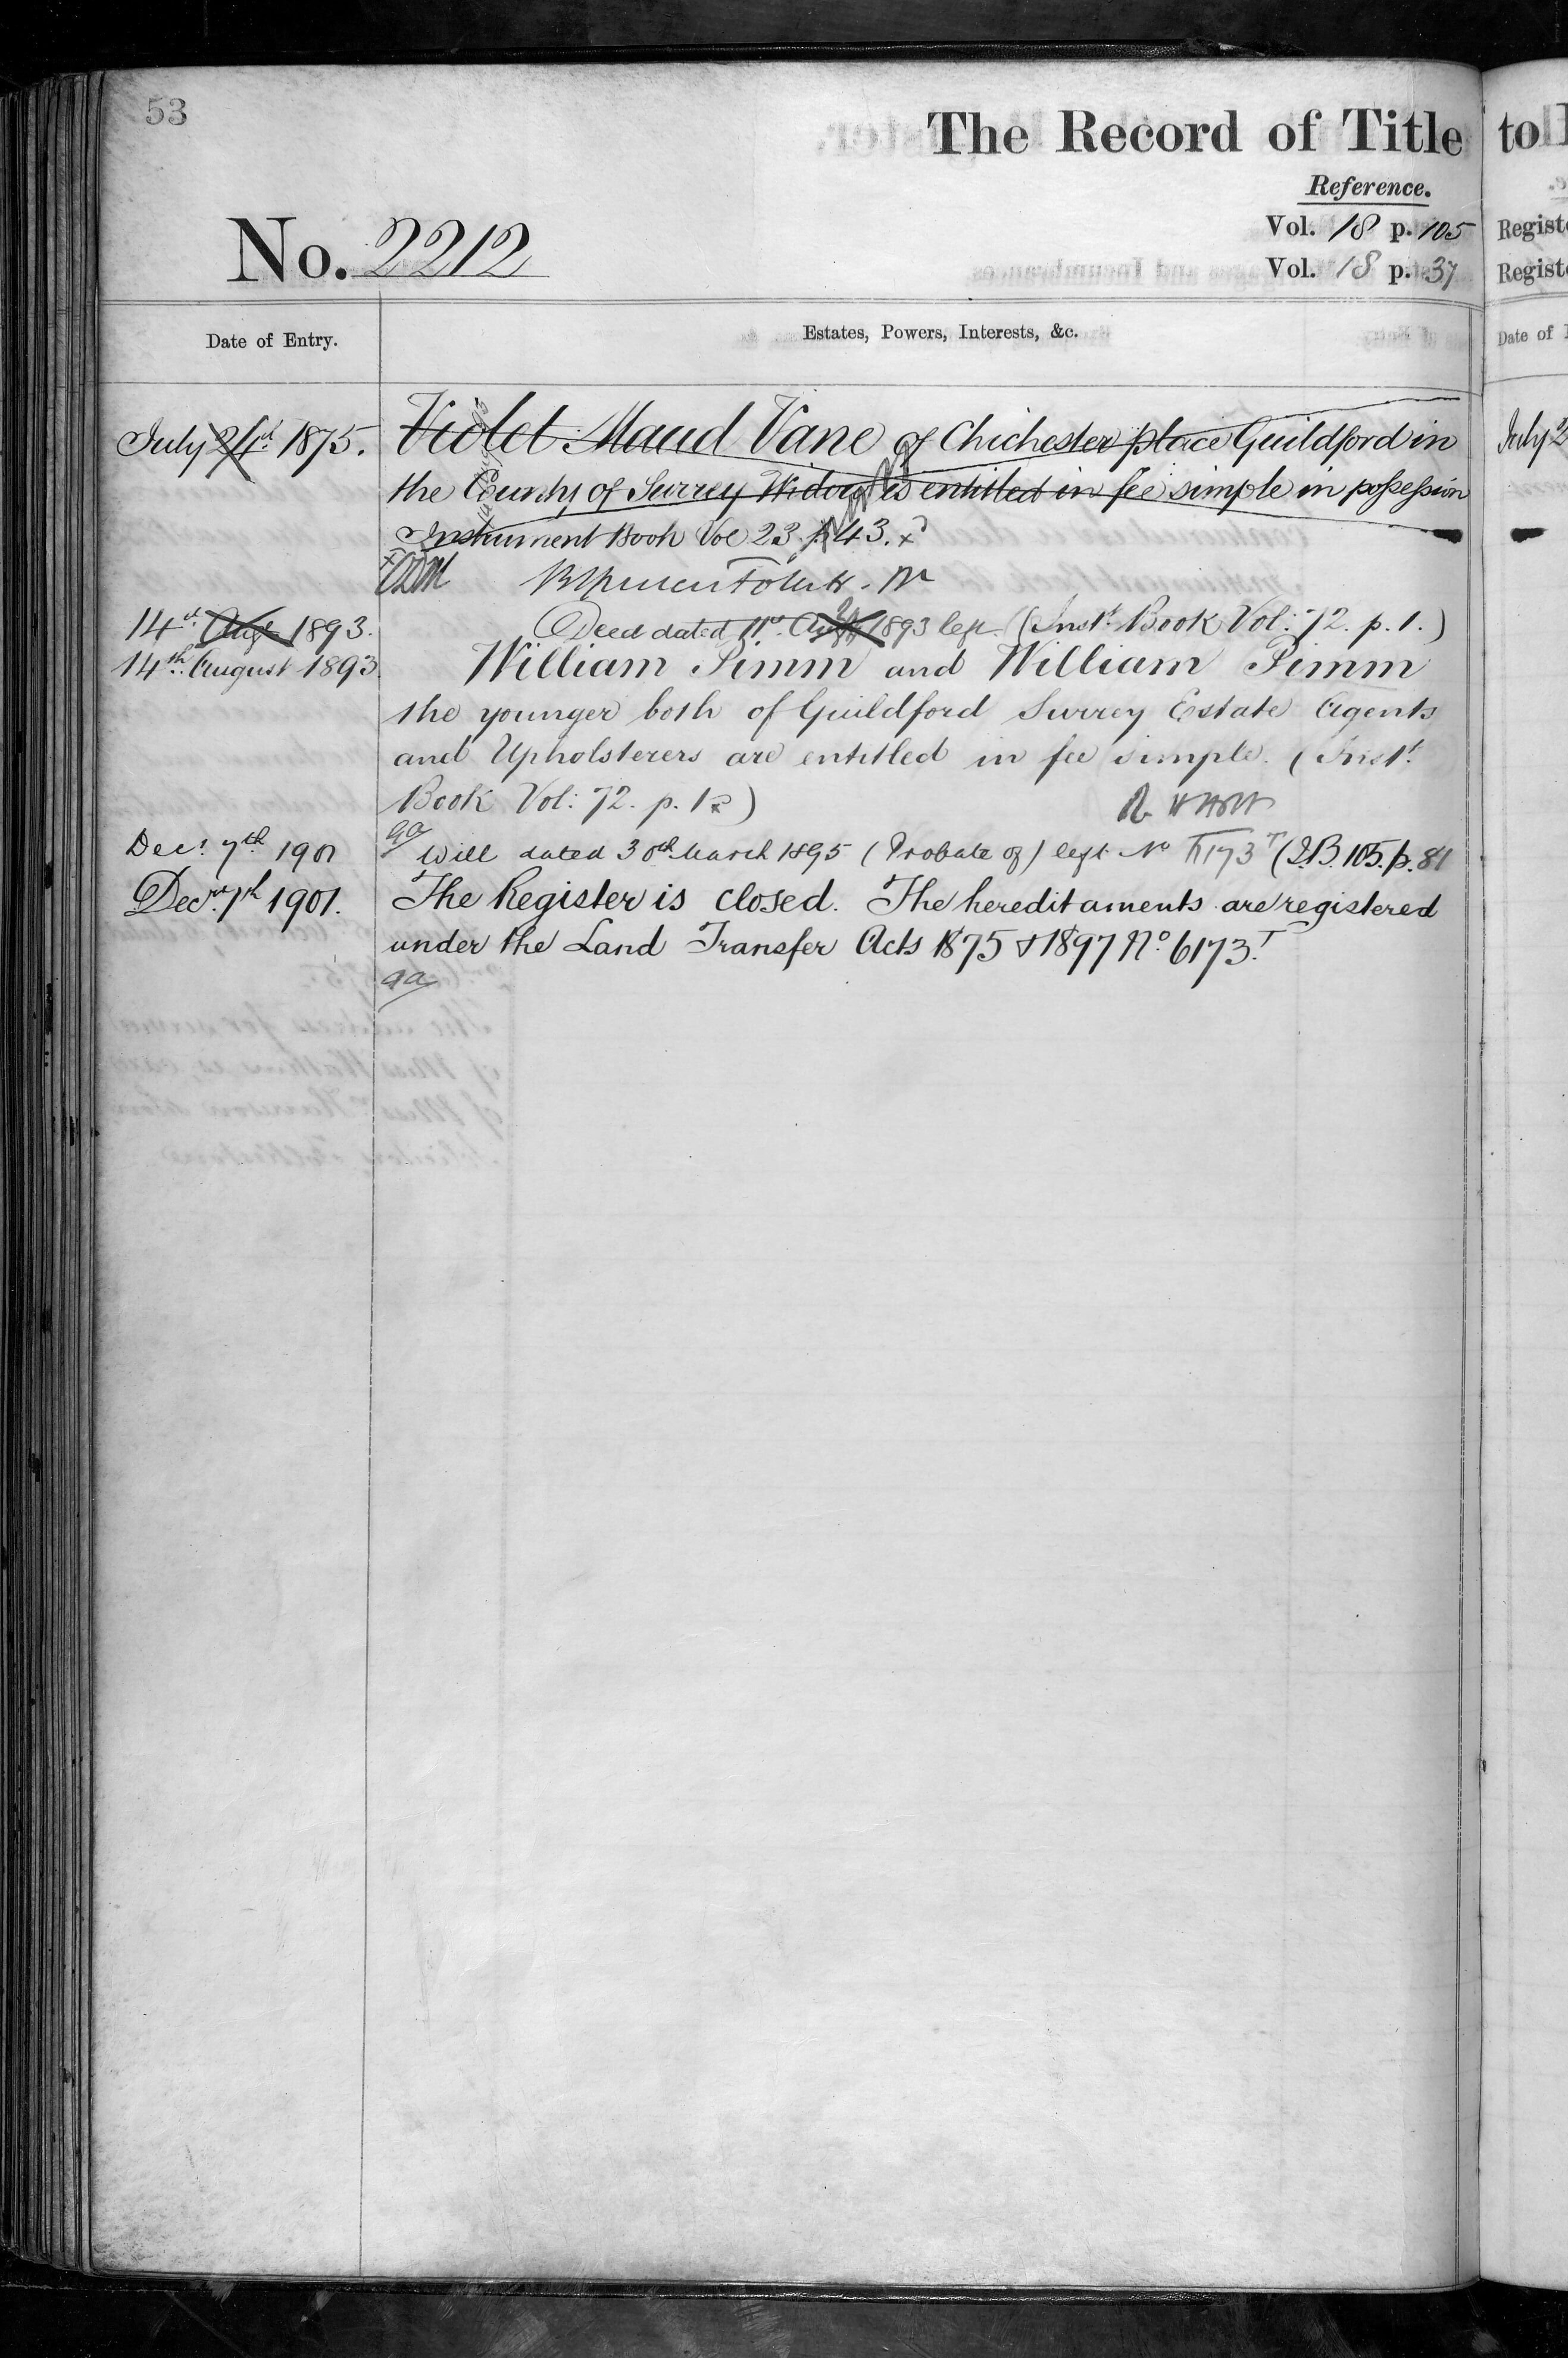 53
The Record of Title
Reference.
No. 2212
Vol. 18 p. 105
Vol. 18 p. 37
Date of Entry.
Estates, Powers, Interests, &c.
July 24th 1875.
Violet Maud Vane of Chichester place Guildford in
the County of Surrey Widow is entitled in fee simple in possession
Instrument Book Vol 23. p. 43.
14th Augt 1893.
Deed dated 11th Augt 1893 left (Inst. Book Vol: 72. p. 1.)
14th August 1893.
William Pimm and William Pimm
the younger both of Guildford Surrey Estate Agents
and Upholsterers are entitled in fee simple. (Inst.
Book Vol: 72. p. 1)
Decr. 7th 1901
Will dated 30th March 1895 (Probate of) left No 6173 T (I.B. 105. p. 81
Decr. 7th 1901.
The Register is closed. The hereditaments are registered
under the Land Transfer Acts 1875 & 1897 No. 6173.T
to
Regist
Regist
Date of
July 2